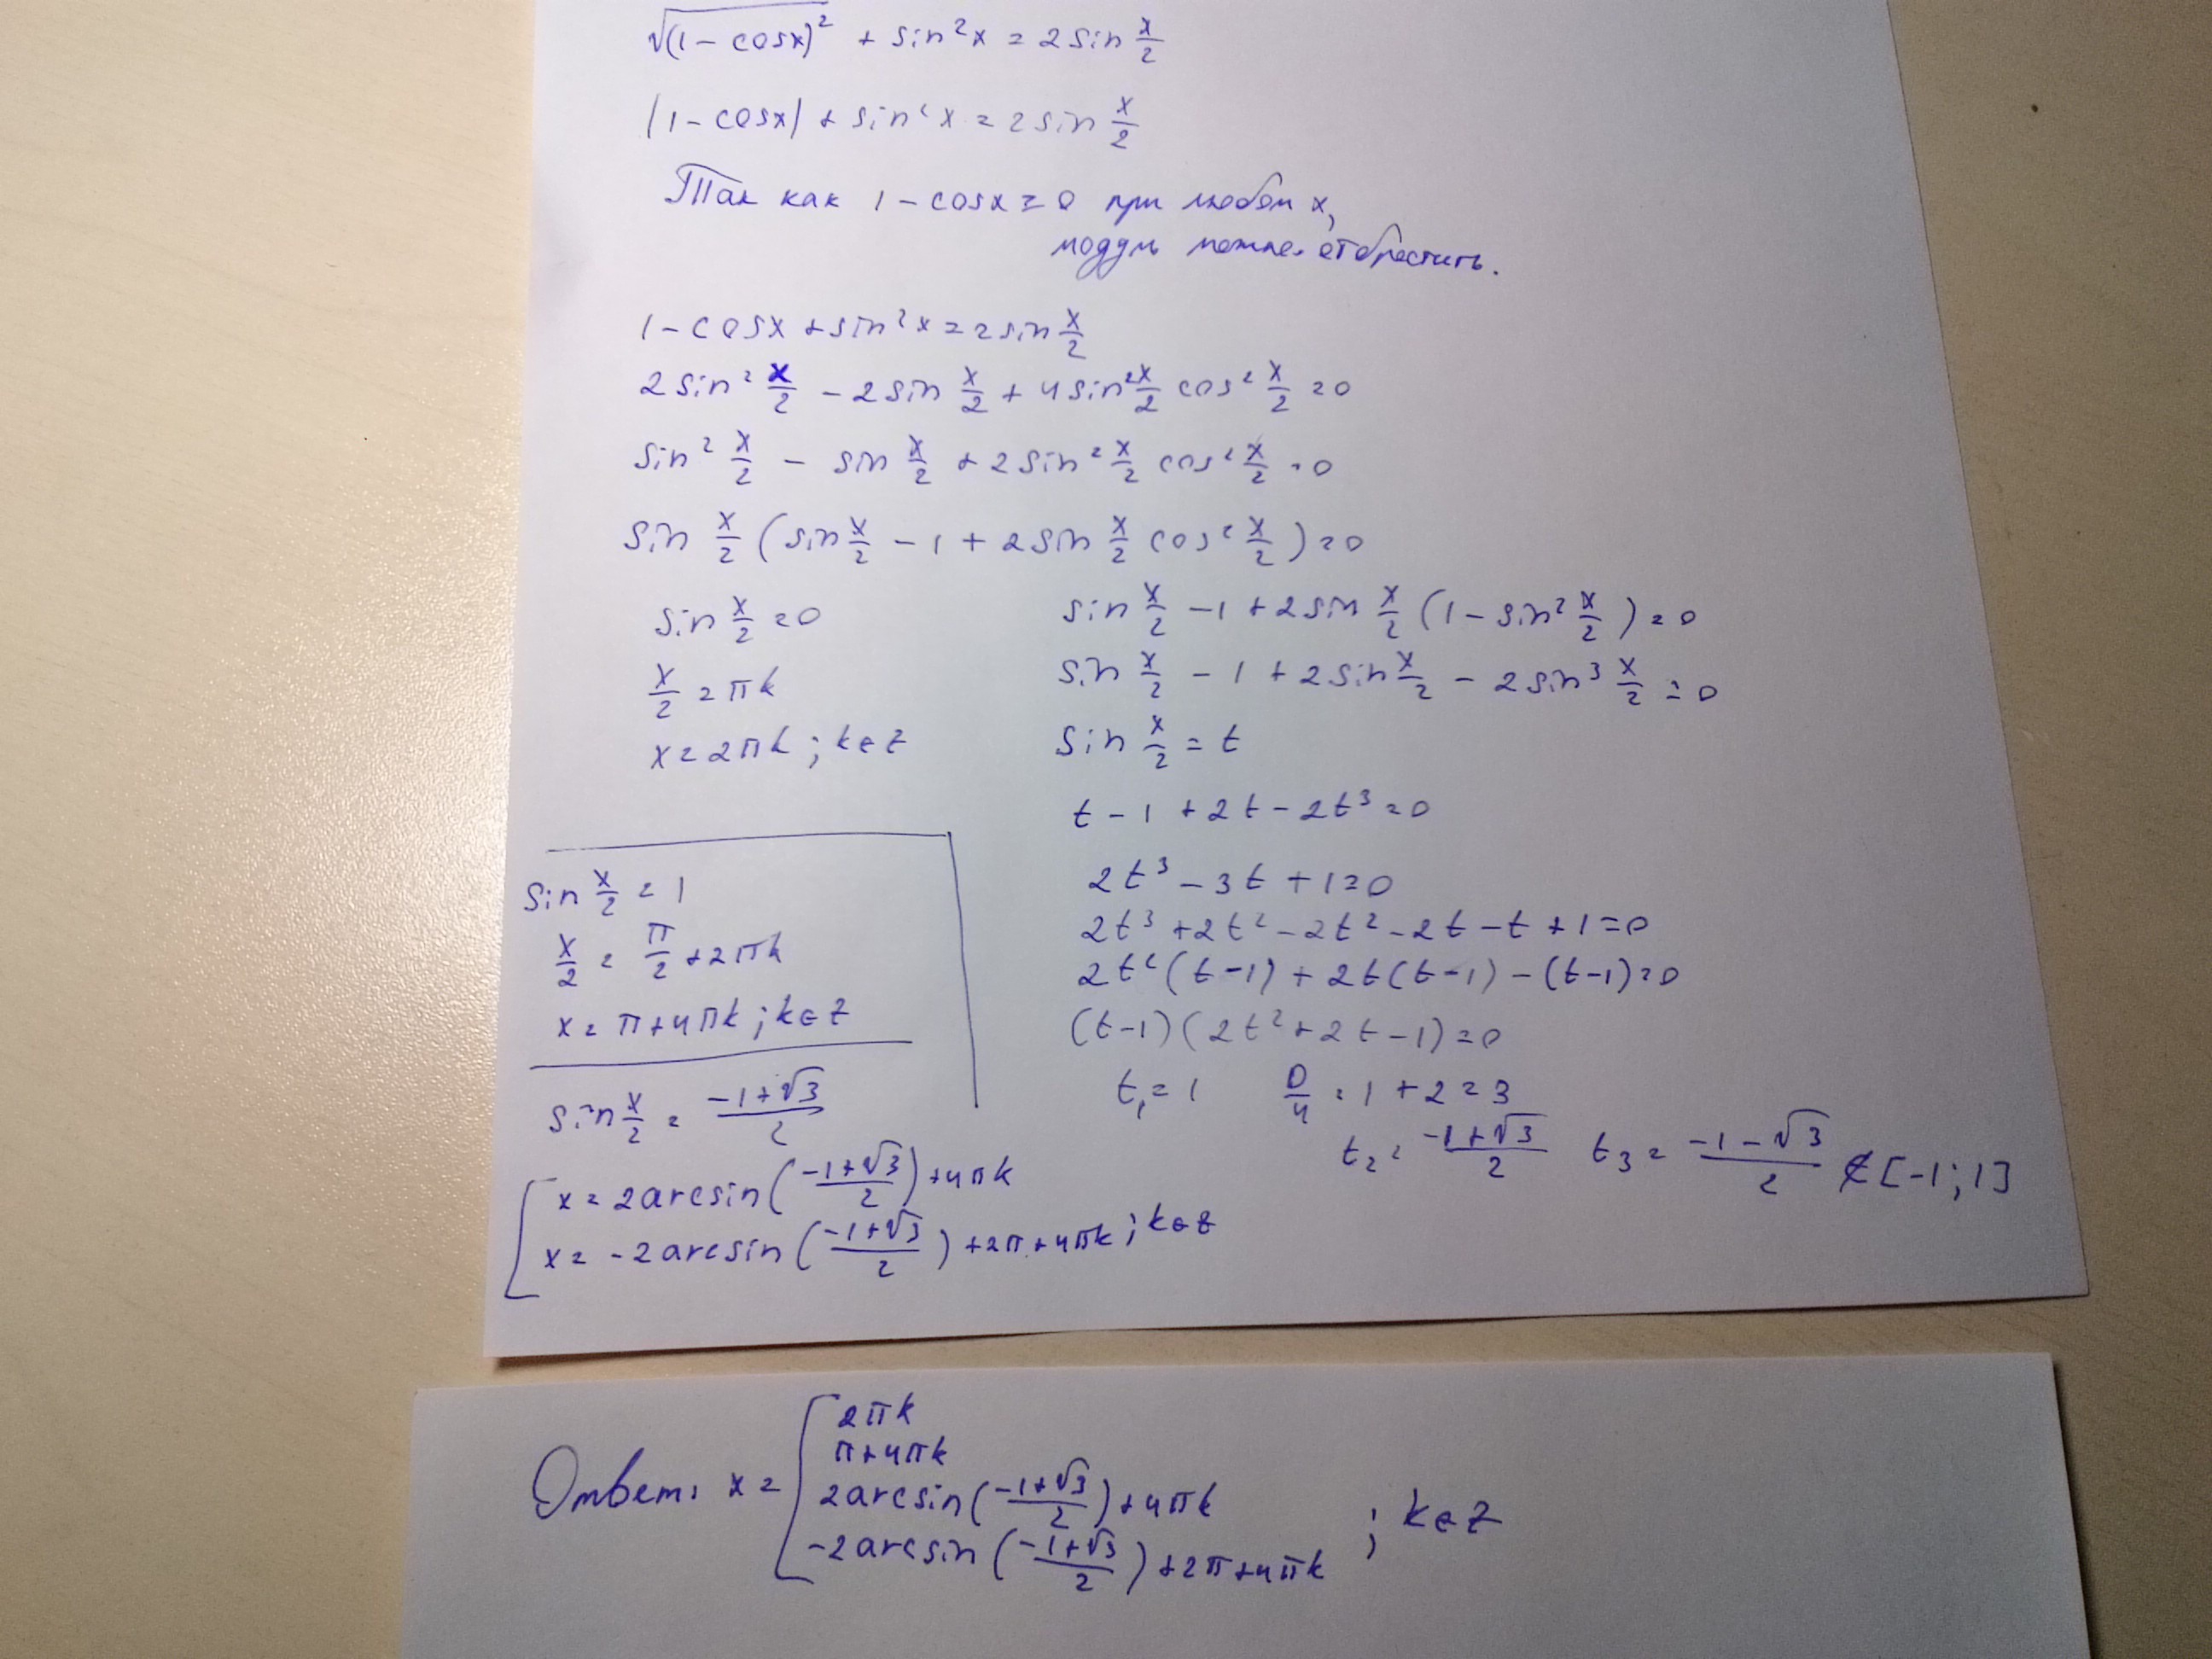 √(1-cosx)² + sin²x = 2 sin x/2
|1-cosx| + sin²x = 2 sin x/2
Так как 1-cosx ≥ 0 при любом x,
модуль можно отбросить.
1-cosx + sin²x = 2 sin x/2
2 sin² x/2 - 2 sin x/2 + 4 sin² x/2 cos² x/2 = 0
sin² x/2 - sin x/2 + 2 sin² x/2 cos² x/2 = 0
sin x/2 (sin x/2 - 1 + 2 sin x/2 cos² x/2) = 0
sin x/2 = 0
x/2 = πk
x = 2πk ; k∈Z
sin x/2 - 1 + 2 sin x/2 (1 - sin² x/2) = 0
sin x/2 - 1 + 2 sin x/2 - 2 sin³ x/2 = 0
sin x/2 = t
t - 1 + 2t - 2t³ = 0
2t³ - 3t + 1 = 0
2t³ + 2t² - 2t² - 2t - t + 1 = 0
2t²(t-1) + 2t(t-1) - (t-1) = 0
(t-1)(2t² + 2t - 1) = 0
t₁ = 1 D/4 = 1 + 2 = 3
t₂ = (-1+√3)/2 t₃ = (-1-√3)/2 ∉ [-1;1]
sin x/2 = 1
x/2 = π/2 + 2πk
x = π + 4πk ; k∈Z
sin x/2 = (-1+√3)/2
x = 2arcsin((-1+√3)/2) + 4πk
x = -2arcsin((-1+√3)/2) + 2π + 4πk ; k∈Z
Ответ: x =
2πk
π+4πk
2arcsin((-1+√3)/2) + 4πk
-2arcsin((-1+√3)/2) + 2π + 4πk
; k∈Z